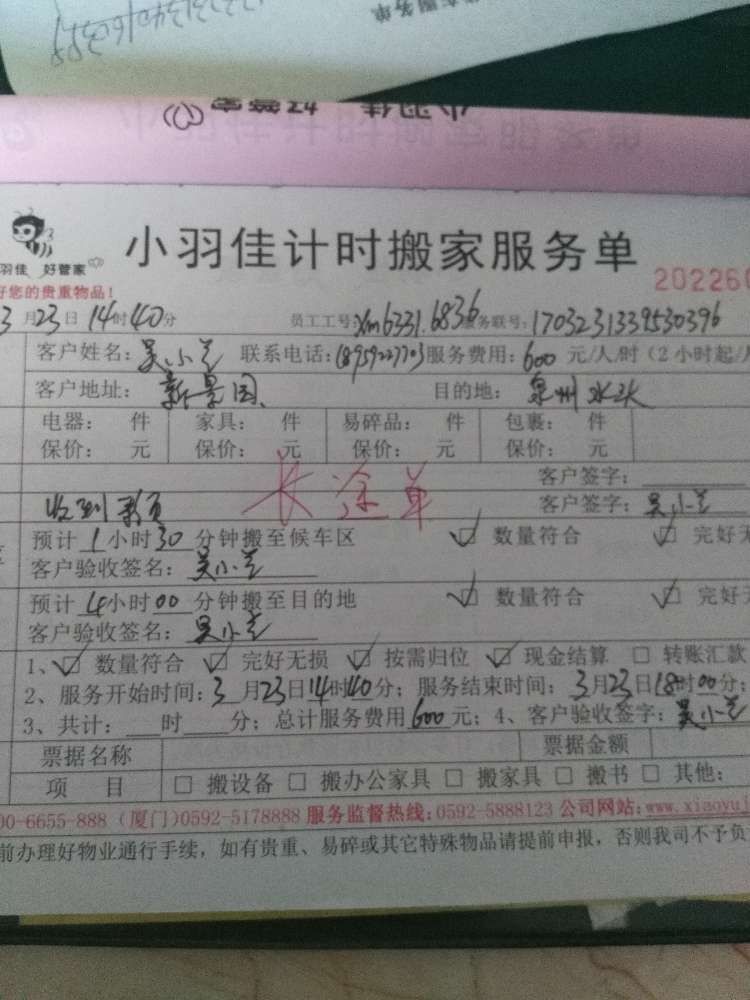 小羽佳
小羽佳计时搬家服务单
羽佳 好管家
202260
好您的贵重物品！
3月23日14时40分 员工工号：xm6331.6836 服务联号：1703231339530396
客户姓名：吴小兰 联系电话：18959227703 服务费用：600元/人/时（2小时起/
客户地址：新景园 目的地：泉州水头
电器： 件 家具： 件 易碎品： 件 包裹： 件
保价： 元 保价： 元 保价： 元 保价： 元
长途单
客户签字：
收到 客户签字：吴小兰
预计1小时30分钟搬至候车区 ☑ 数量符合 ☑ 完好无
客户验收签名：吴小兰
预计4小时00分钟搬至目的地 ☑ 数量符合 ☑ 完好无
客户验收签名：吴小兰
1、☑ 数量符合 ☑ 完好无损 ☑ 按需归位 ☑ 现金结算 □ 转账汇款
2、服务开始时间：3月23日14时40分；服务结束时间：3月23日18时00分；
3、共计： 时 分；总计服务费用600元；4、客户验收签字：吴小兰
票据名称 票据金额
项 目 □ 搬设备 □ 搬办公家具 □ 搬家具 □ 搬书 □ 其他：
00-6655-888（厦门）0592-5178888 服务监督热线：0592-5888123 公司网站：www.xiaoyuj
前办理好物业通行手续，如有贵重、易碎或其它特殊物品请提前申报，否则我司不予负